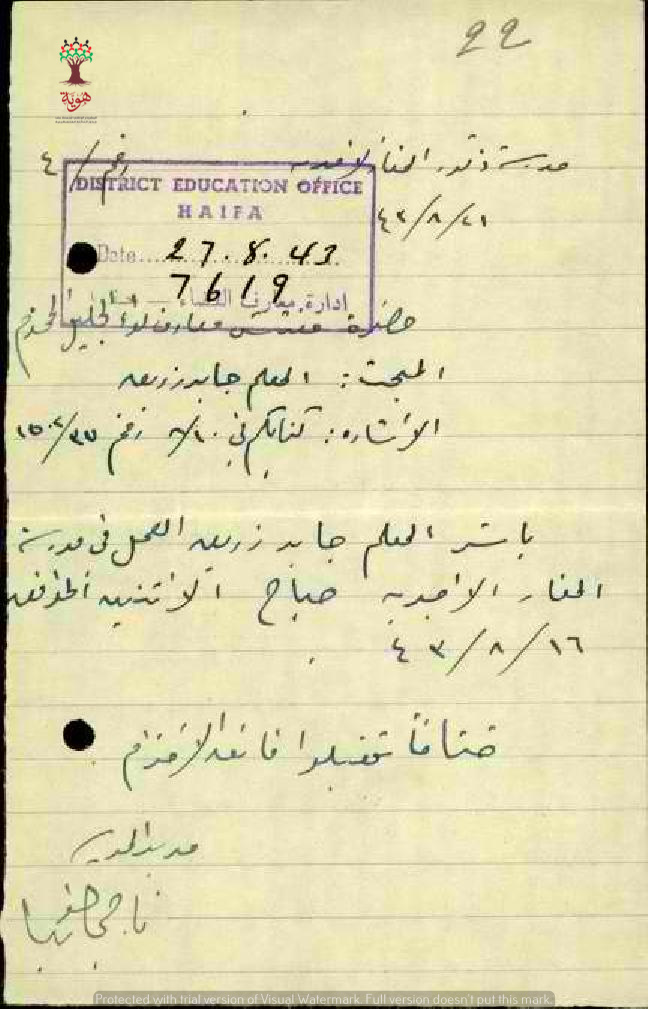 22
هوية
مدرسة ذكور المغار الاميرية
رقم / ٤
٤٣/٨/٢١
DISTRICT EDUCATION OFFICE
HAIFA
Date... 27.8.43
7619
ادارة معارف اللواء
حضرة مفتش معارف لواء الجليل المحترم
المبحث: المعلم جابر زريق
الاشارة: كتابكم في ٨/١٠ رقم
باشر المعلم جابر زريق العمل في مدرسة
المغار الاميرية صباح الاثنين الموافق
٤٣/٨/١٦
ختاماً تفضلوا فائق الاحترام
مدير المدرسة
Protected with trial version of Visual Watermark. Full version doesn't put this mark.